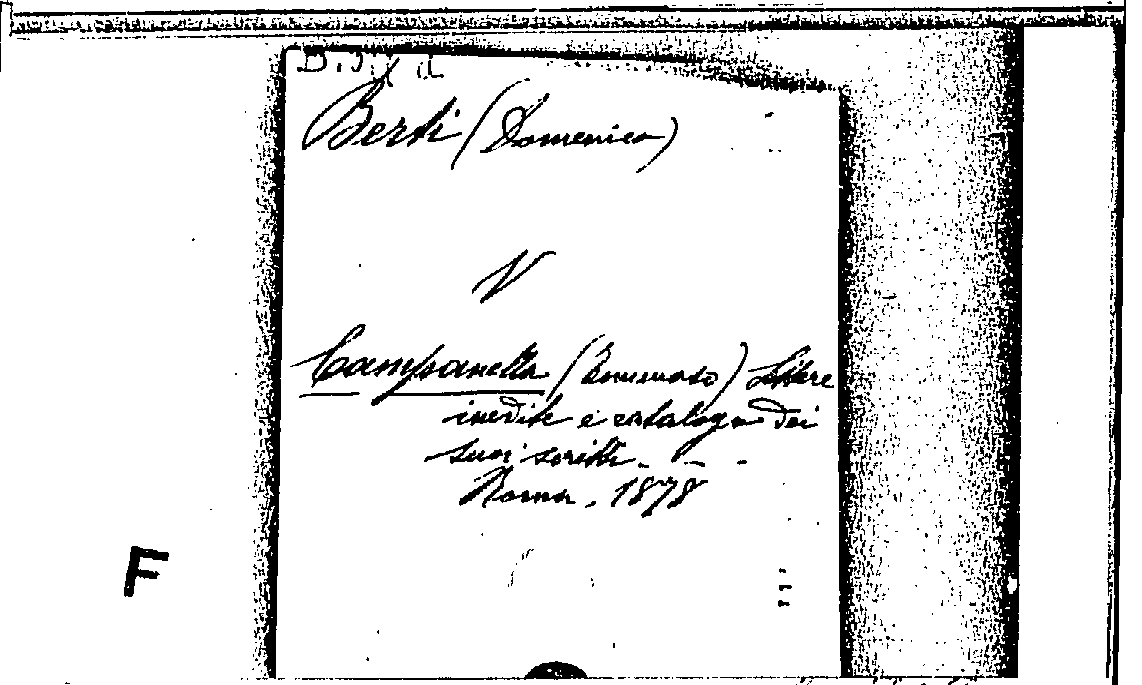 Berti (Domenico)
V
Campanella (Tommaso) Lettere
inedite e catalogo dei
suoi scritti - - -
Roma, 1878
F